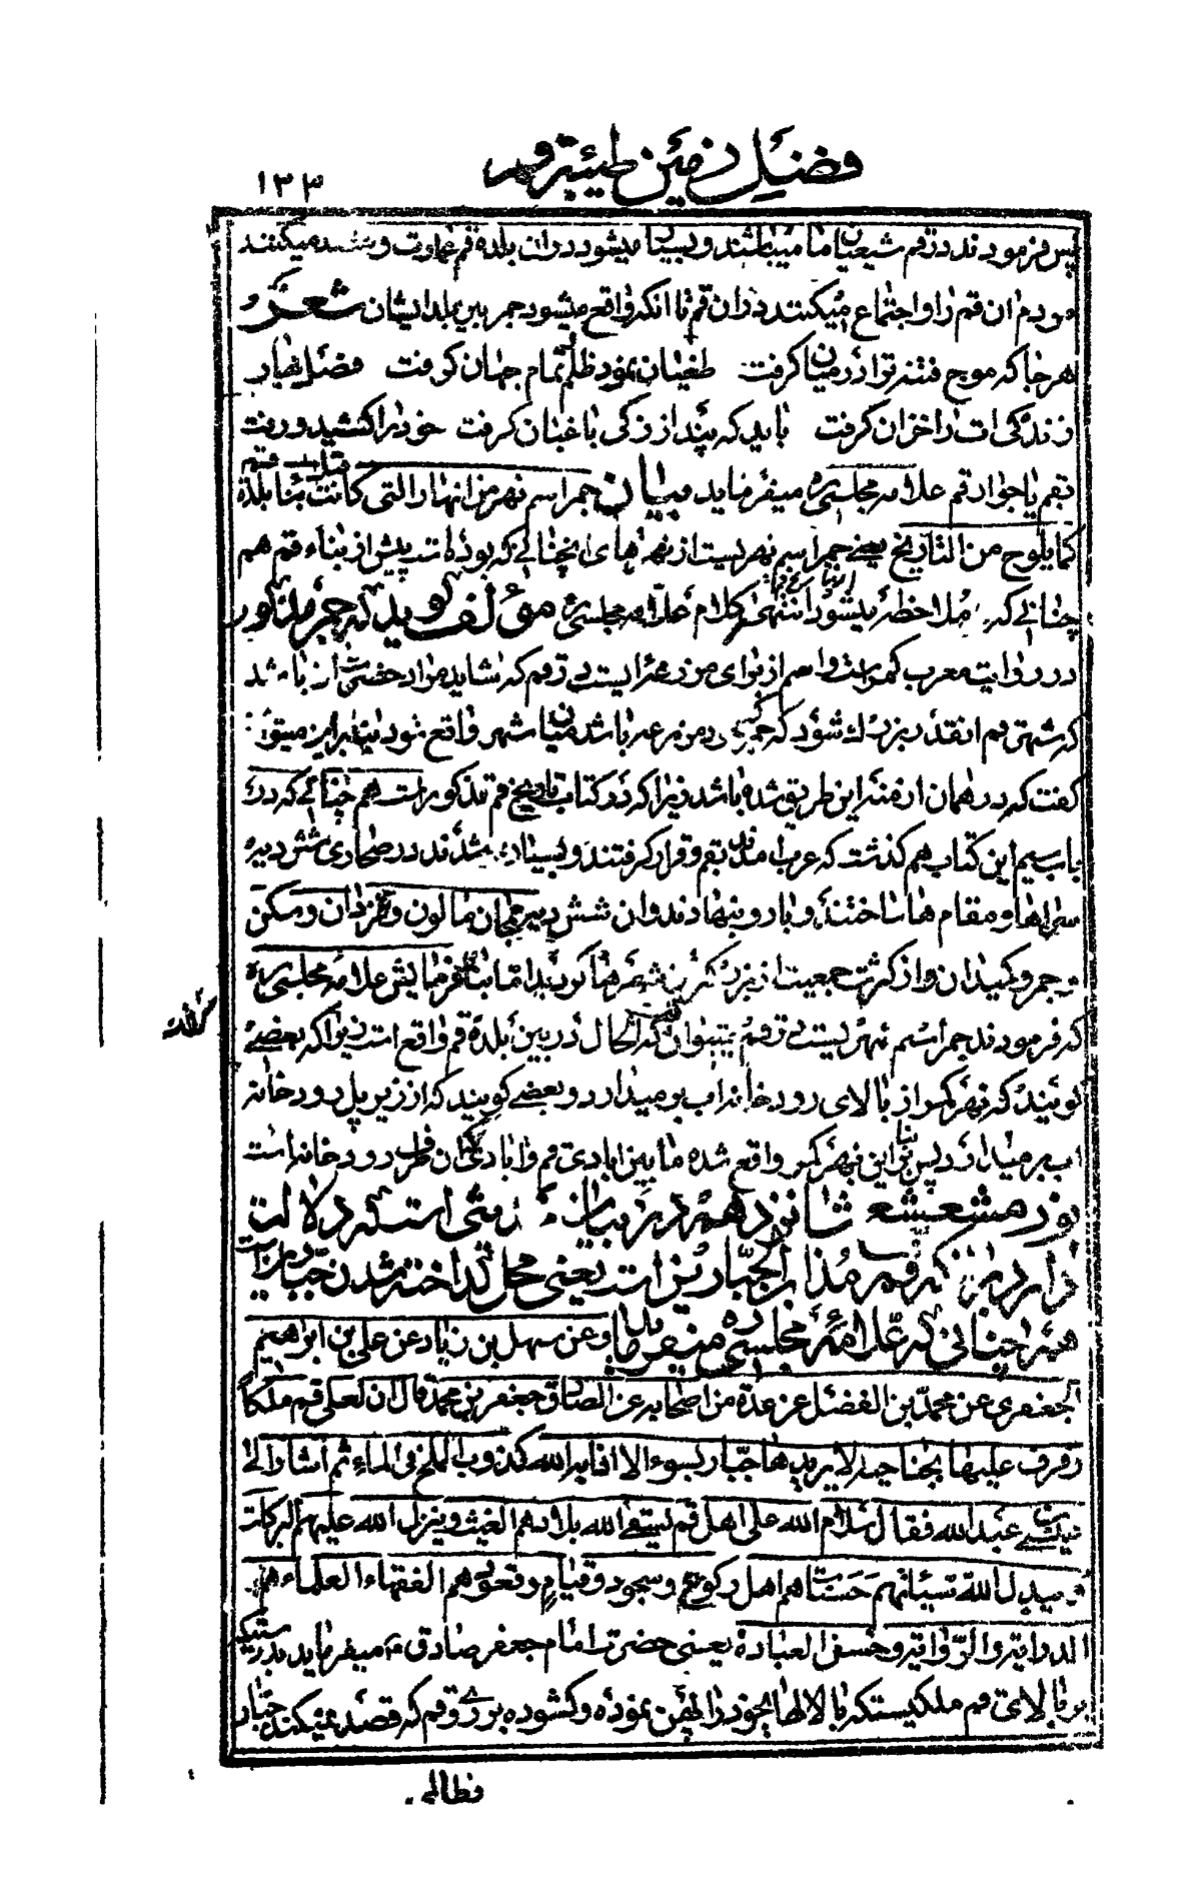 فضل زمین طیبه قم
۱۳۳
پس فرمودند در قم شیعیان ما میباشند و بسیار میشود در ان بلده قم عمارت و قصد میکنند
مردم ان قم را و اجتماع میکنند در ان قم تا انکه واقع میشود جمر بین بلد ایشان شعر
هر جا که موج فتنه تو را در میان گرفت طغیان نمود ظلم تمام جهان گرفت فصل بهار
زندگی ات را خزان گرفت باید که پند از زکی باغبان گرفت خود را کشید و رفت
بقم یا جوار قم علامه مجلسی ره میفرماید بیان جمر اسم نهر من انهار التی کانت قبل بناء بلدة قم
کما یلوح من التاریخ یعنی جمر اسم نهریست از نهرهای انچنانی که بوده است پیش از بناء قم هم
چنانی که ملاحظه میشود از تاریخ قم انتهی کلام علامه مجلسی ره مؤلف گوید که جمر مذکور
در روایت معرب کمر است و اسم از برای مزرعه ایست در قم که شاید مراد حضرت ان باشد
که شهر قم انقدر بزرگ شود که جمر مزرعه باشد میان شهر واقع شود بنا بر این میتو
گفت که در همان ازمنه این طریق شده باشد زیرا که در کتاب تاریخ قم مذکور است هم چنانی که در
باب سیم این کتاب هم گذشت که عرب امدند بقم و قرار گرفتند و بسیار شدند در صحاری شش دیه
سراها و مقام ها ساختند و بارو بنهادند و ان شش دیه ممجان مالون و قزدان و سکن
و جمر و کمیدان و از کثرت جمعیت از بزرگترین شهرها گردید اما بنا بفرمایش علامه مجلسی ره
که فرمودند جمر اسم نهریست در قم میتوان گفت که الحال در بین بلده قم واقع است زیرا که بعضی
گویند که نهر کمر از بالای رودخانه اب بر میدارد و بعضی گویند که از زیر پل رودخانه
اب بر میدارد پس بنا بر این نهر کمر واقع شده ما بین ابادی قم و ابادی ان طرف رودخانه است
نور مشعشع شانزدهم در بیان حدیثی است که دلالت
دارد بر این که قم مذاب الجبارین است یعنی محل گداخته شدن جباران است
هم چنانی که علامه مجلسی ره میفرماید و عن سهل بن زیاد عن علی بن ابراهیم
الجعفری عن محمد بن الفضل عن عدة من اصحابه عن الصادق جعفر بن محمد قال ان لعلی قم ملکا
رفرف علیها بجناحیه لا یریدها جبار بسوء الا اذابه الله کذوب الملح فی الماء ثم اشار الی
عیسی بن عبد الله فقال سلام الله علی اهل قم یسقی الله بلادهم الغیث و ینزل الله علیهم البرکات
و یبدل الله سیئاتهم حسنات هم اهل رکوع و سجود و قیام و قعود هم الفقهاء العلماء هم
الدرایة و الروایة و حسن العبادة یعنی حضرت امام جعفر صادق ع میفرماید بدرستیکه
بر بالای قم ملکیست که بالالها بخود را پهن نموده و گشوده بروی قم که قصد نمیکند جبار